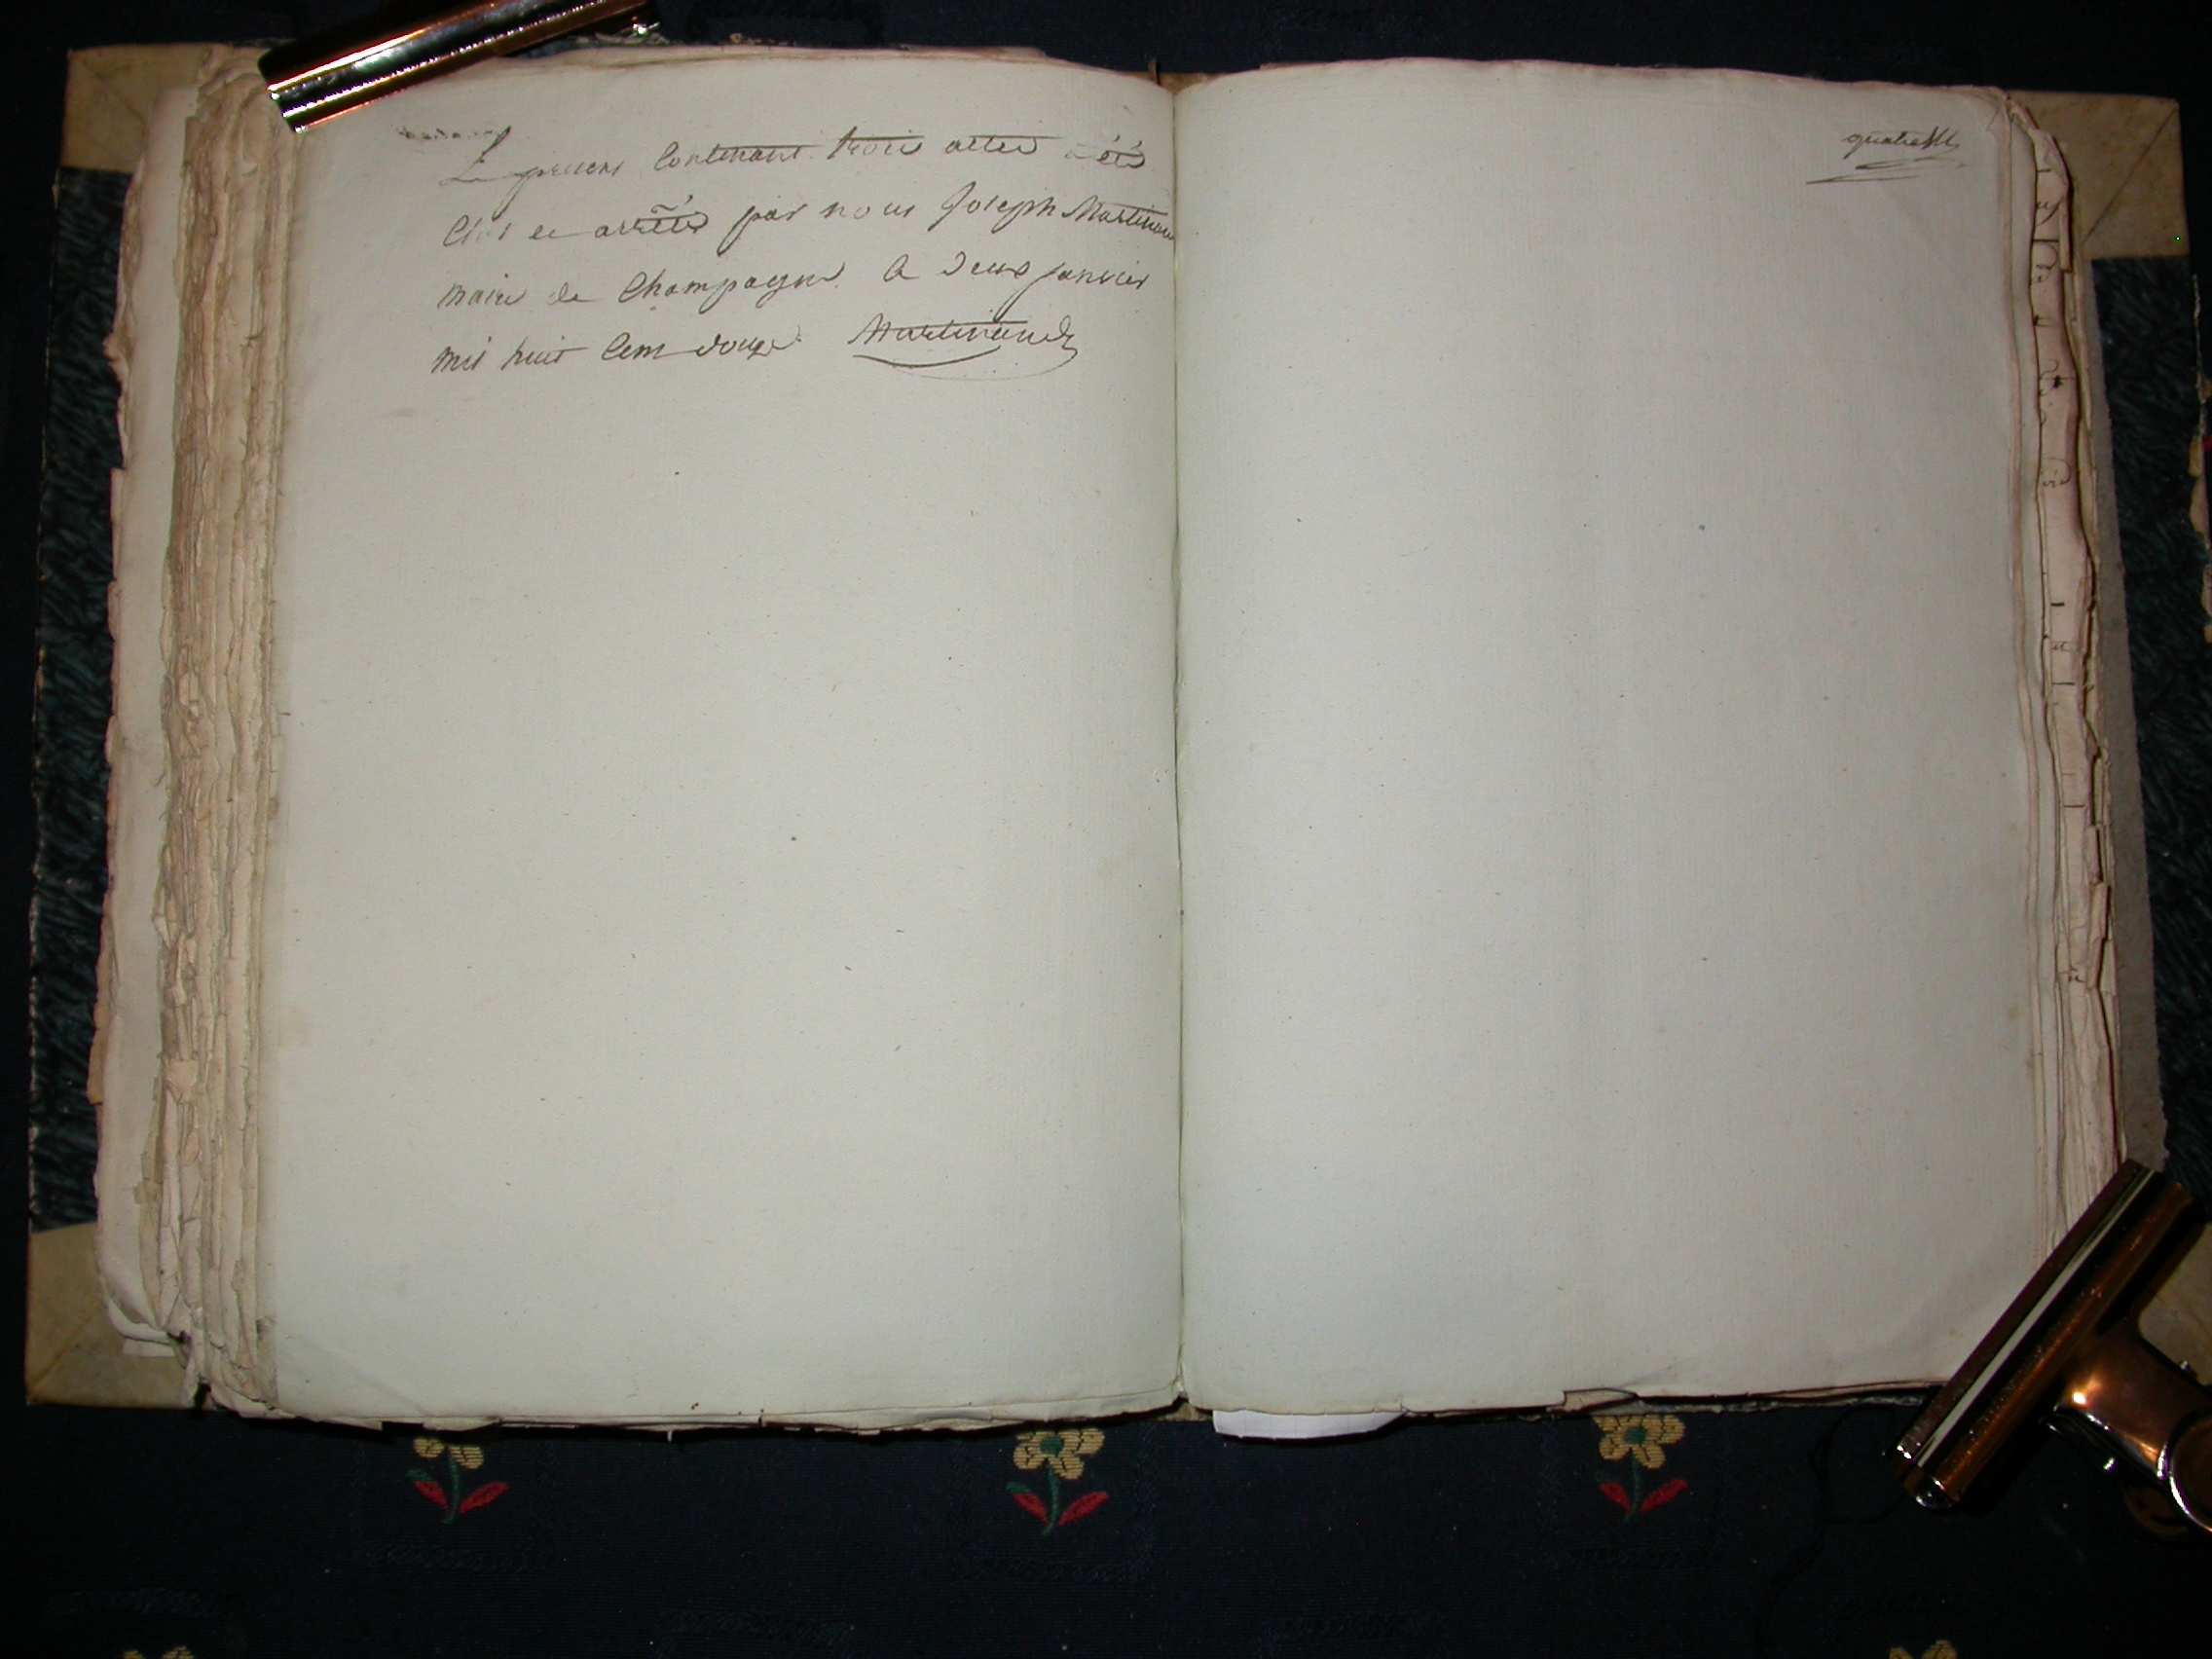 Le present contenant trois actes a été
clos et arrêté par nous Joseph Martinand
maire de Champagne le deux janvier
mil huit cent douze Martinand
quatre